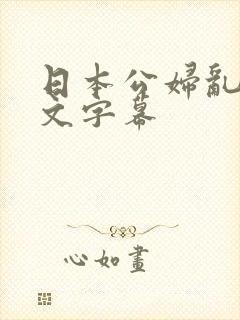 日本公婦亂
文字幕
心如畫